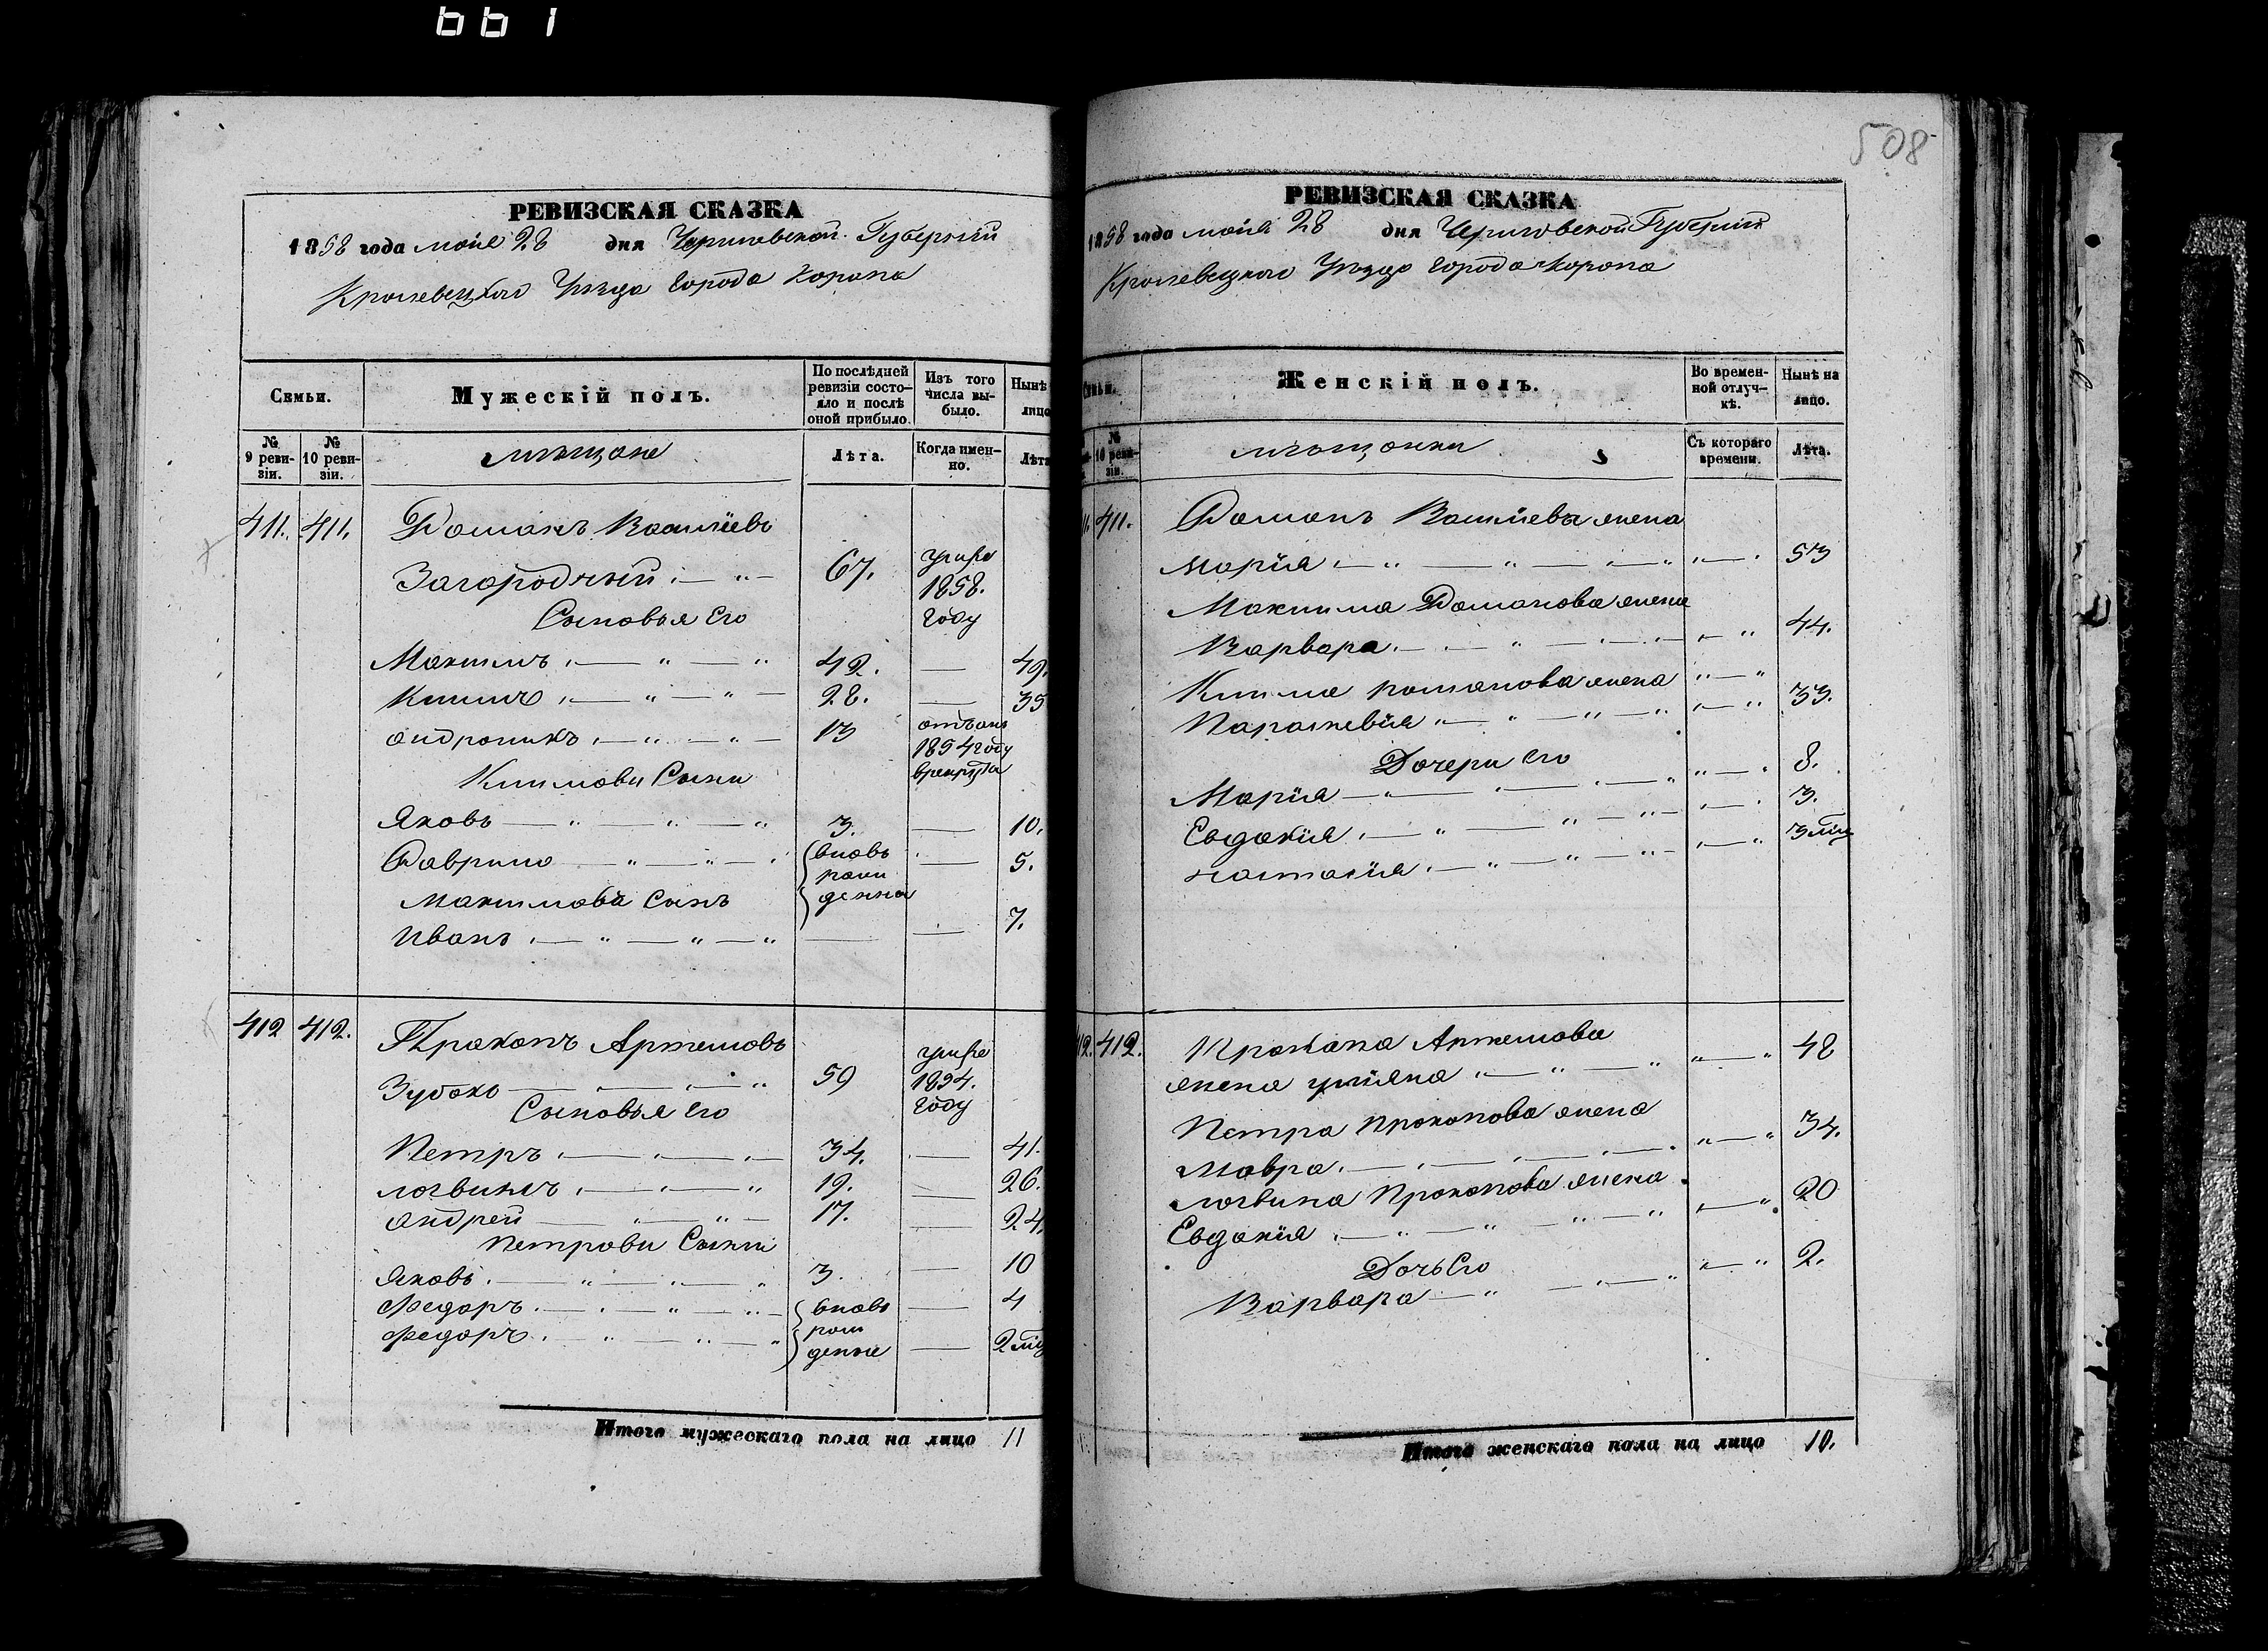 661
РЕВИЗСКАЯ СКАЗКА
1858 года мая 28 дня Черниговской Губернии
Кролевецкого Уезда Города Коропа
Семьи.
Мужескій полъ.
По послѣдней ревизіи состояло и послѣ оной прибыло.
Изъ того числа выбыло.
Нынѣ
лицо
№ 9 ревизіи.
№ 10 ревизіи.
мѣщане
Лѣта.
Когда именно.
Лѣта
411. 411. Романъ Василіевъ
Загородный 67. умре 1858. году
Сыновья Его
Максимъ 42. — 49.
Климъ 28. — 35
Андроникъ 13 отданъ 1854 году в рекрута
Климови Сыни
Яковъ 3. — 10.
Гаврило вновь рожденна — 5.
Максимова Сынъ
Иванъ — — 7.
412 412. Прокопъ Артемовъ
Зубохо 59 умре 1854. году
Сыновья Его
Петръ 34. — 41.
Логвинъ 19. — 26.
Андрей 17. — 24
Петрови Сыни
Яковъ 3. — 10
Федоръ вновь рож — 4
Федоръ денние — 2 мѣ
Итого мужескаго пола на лицо 11
508
РЕВИЗСКАЯ СКАЗКА
1858 года мая 28 дня Черниговской Губернии
Кролевецкого Уезда Города Коропа
Семьи.
Женскій полъ.
Во временной отлучкѣ.
Нынѣ на лицо.
№ 10 ревизіи.
мѣщанки
Съ котораго времени.
Лѣта.
411. Романъ Василіева жена
Марія 53
Максима Романова жена
Варвара 44.
Клима романова жена
Параскевія 33.
Дочери его
Марія 8.
Евдокія 3.
настасія 3 мѣц
412. Прокопа Артемова 48
жена уліяна
Петра Прокопова жена
Мавра 34.
логвина Прокопова жена
Евдокія 20
Дочь Его
Варвара 2.
Итого женскаго пола на лицо 10.